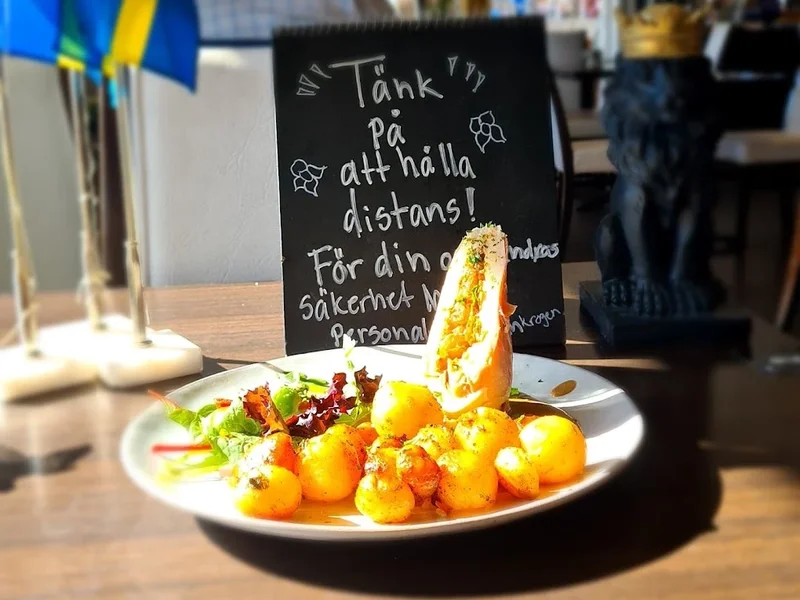 Tänk
på
att hålla
distans!
För din o ndras
säkerhet
Personal nkrogen